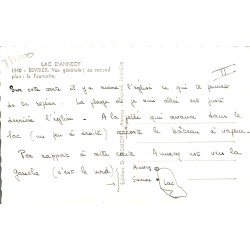 LAC D'ANNECY
1940 - SEVRIER. Vue générale; au second
plan: la Tournette.
II
Sur cette carte il y a même l'église ce qui te permet
de te repérer. La plage où je suis allée est juste
derrière l'église. A la jetée qui avance dans le
lac (un peu à droite) accoste le bâteau à vapeur.
Par rapport à cette carte Annecy est vers la
gauche (c'est le nord)
Annecy
Sevrier
Lac